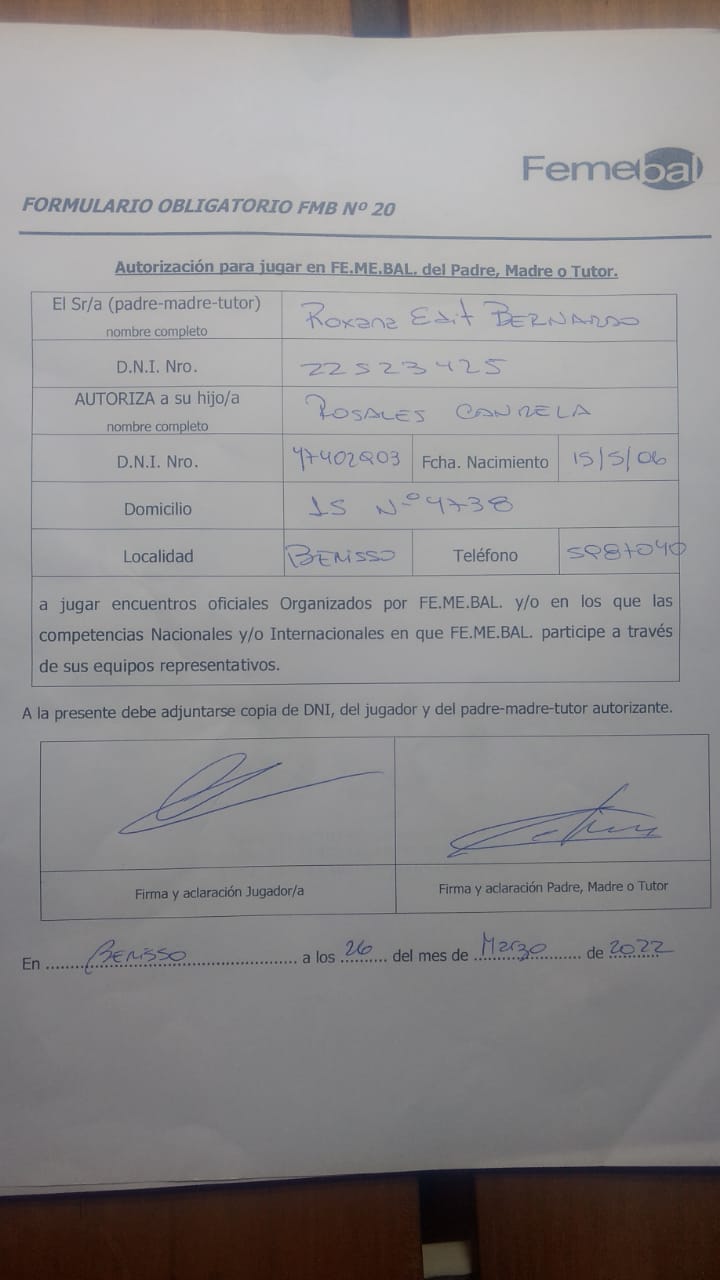 Femebal
FORMULARIO OBLIGATORIO FMB Nº 20
Autorización para jugar en FE.ME.BAL. del Padre, Madre o Tutor.
El Sr/a (padre-madre-tutor)
nombre completo
Roxana Edit BERNARDO
D.N.I. Nro.
22523425
AUTORIZA a su hijo/a
nombre completo
ROSALES CANDELA
D.N.I. Nro.
Fcha. Nacimiento
15/5/06
Domicilio
15 Nº 4738
Localidad
BERISSO
Teléfono
a jugar encuentros oficiales Organizados por FE.ME.BAL. y/o en los que las
competencias Nacionales y/o Internacionales en que FE.ME.BAL. participe a través
de sus equipos representativos.
A la presente debe adjuntarse copia de DNI, del jugador y del padre-madre-tutor autorizante.
Firma y aclaración Jugador/a
Firma y aclaración Padre, Madre o Tutor
En BERISSO a los 26 del mes de Marzo de 2022